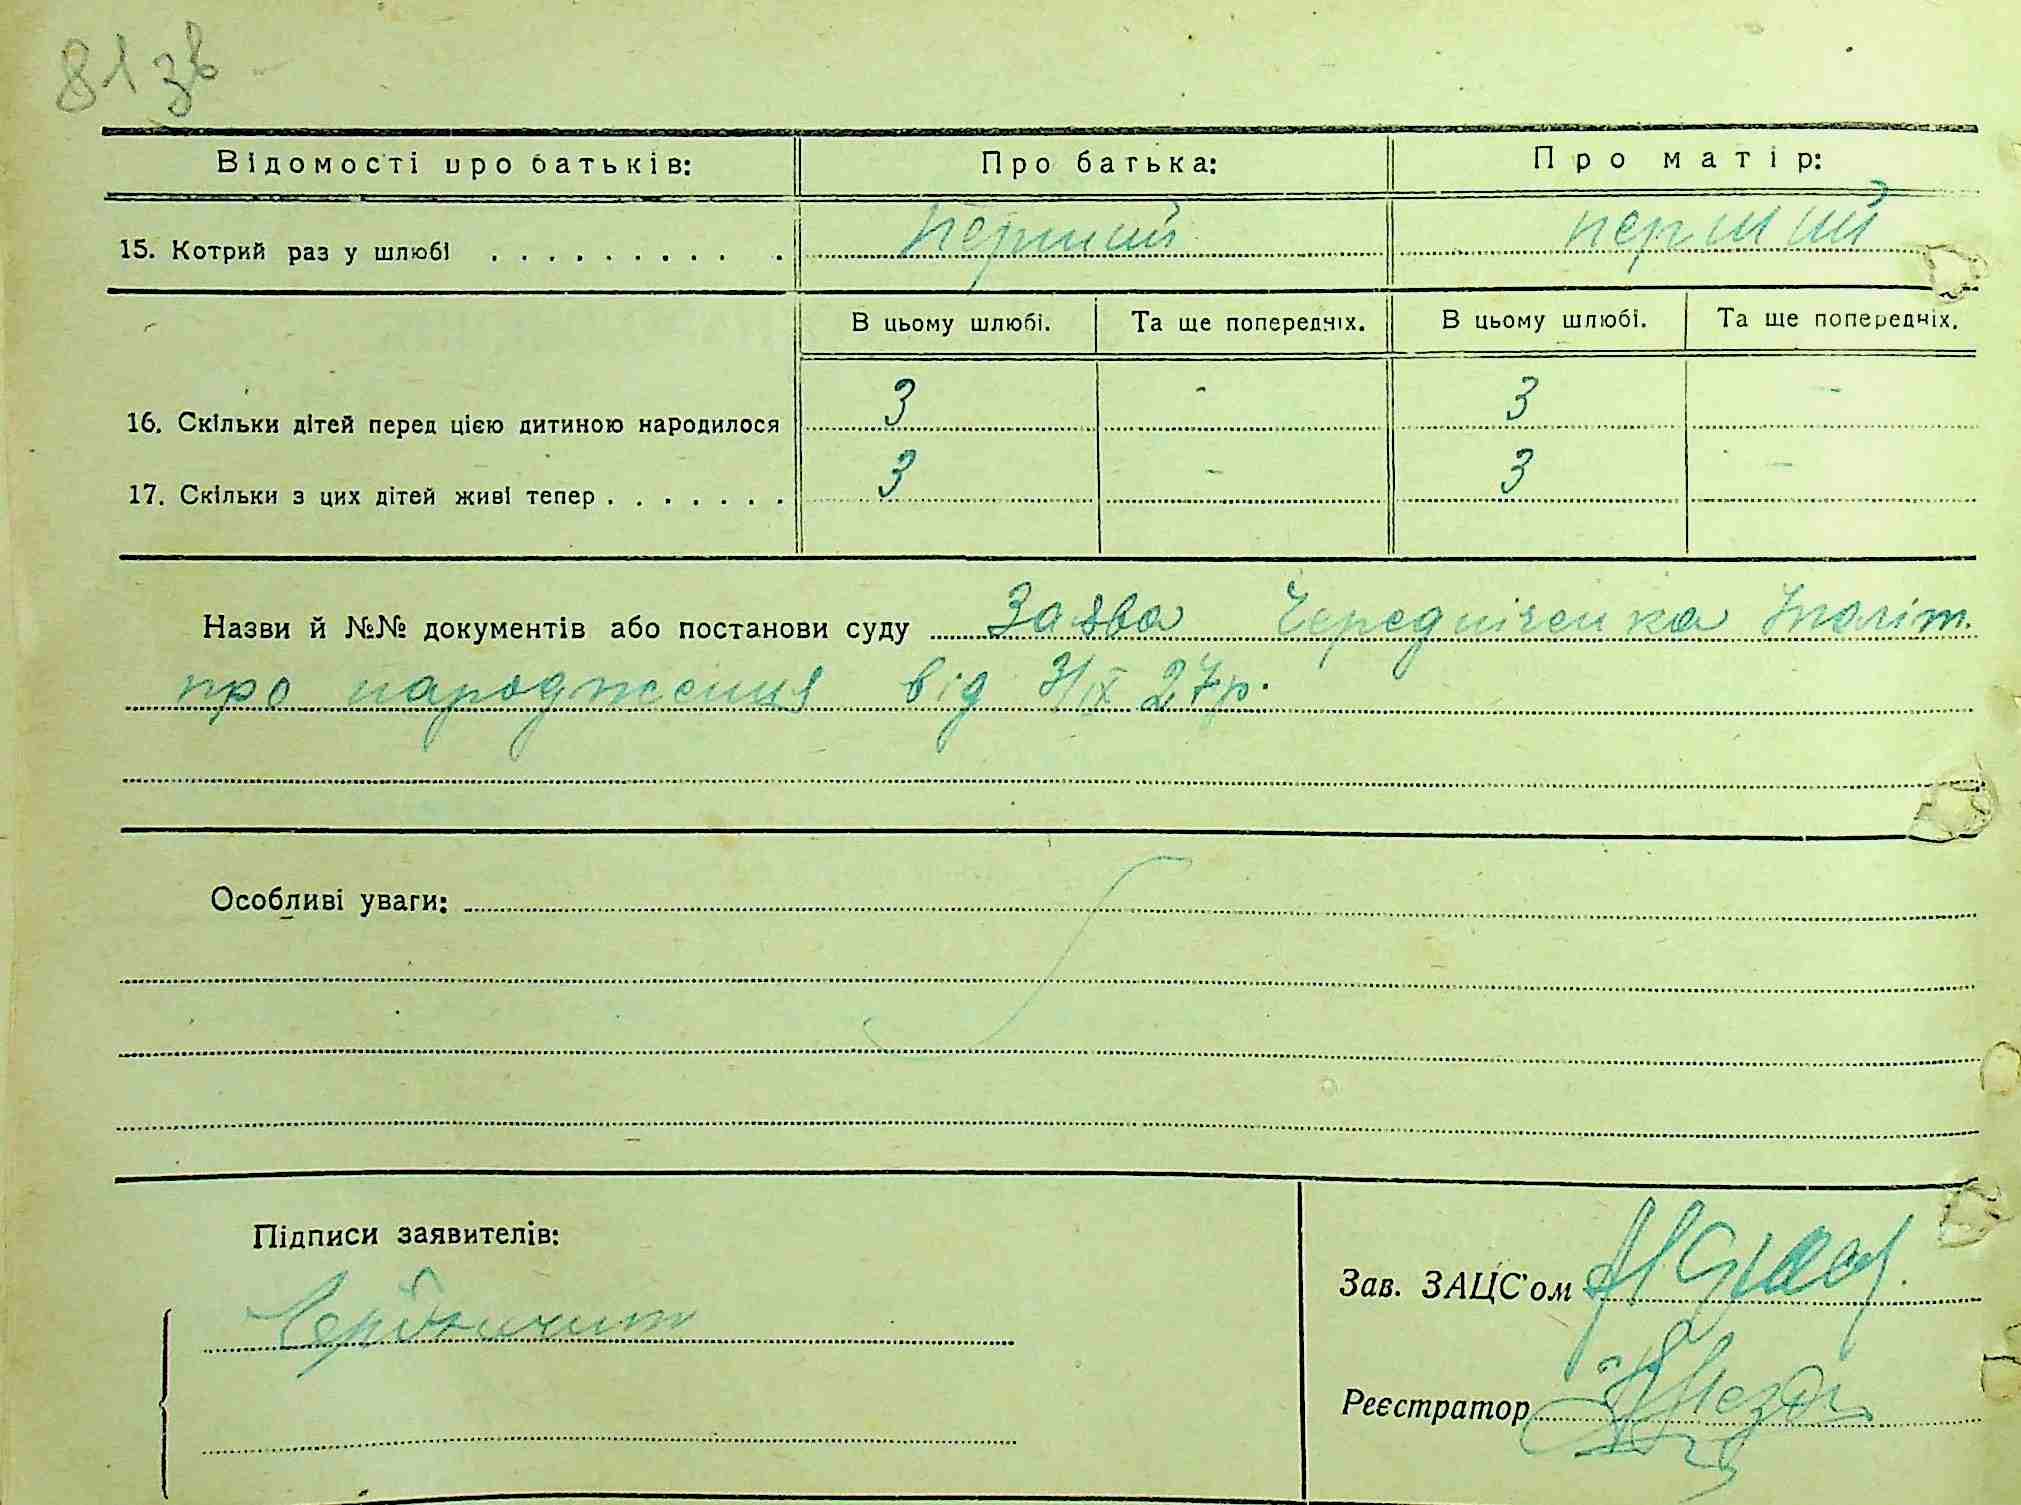 81 зв
Відомості про батьків: Про батька: Про матір:
15. Котрий раз у шлюбі . . . . . . . . . . перший перший
В цьому шлюбі. Та ще попередніх. В цьому шлюбі. Та ще попередніх.
16. Скільки дітей перед цією дитиною народилося 3 - 3 -
17. Скільки з цих дітей живі тепер . . . . . . . 3 - 3 -
Назви й №№ документів або постанови суду Заява Чередніченка Іполіт.
про народження від 3/IX 27р.
Особливі уваги:
Підписи заявителів:
Зав. ЗАЦС'ом
Реєстратор